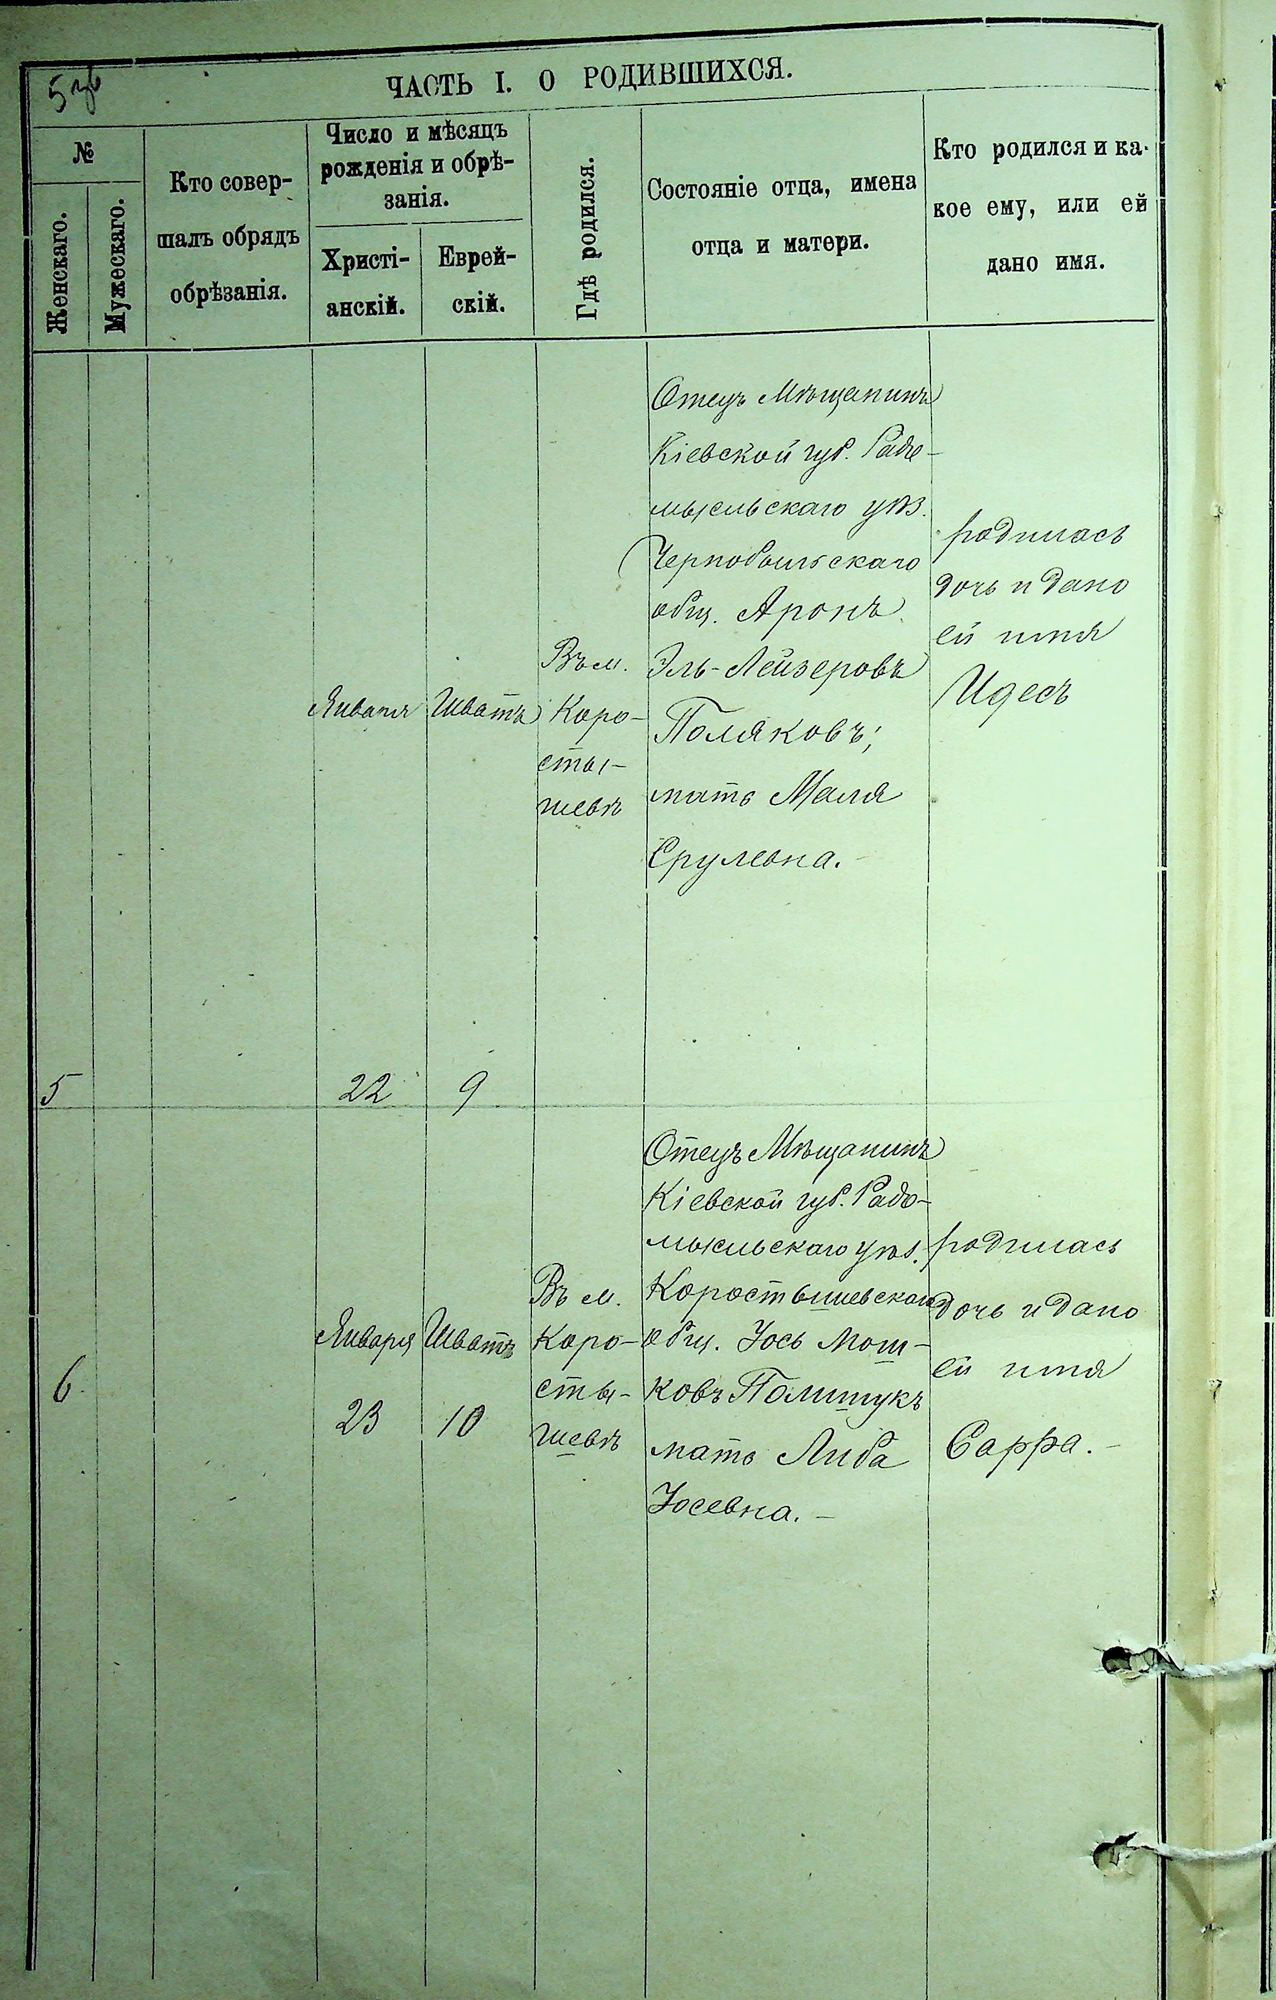 ЧАСТЬ I. О РОДИВШИХСЯ.
№
Женскаго.
Мужескаго.
Кто совер-
шалъ обрядъ
обрѣзанія.
Число и мѣсяцъ
рожденія и обрѣ-
занія.
Христі-
анскій.
Еврей-
скій.
Гдѣ родился.
Состояніе отца, имена
отца и матери.
Кто родился и ка-
кое ему, или ей
дано имя.
5
Января
22
Шватъ
9
Въ м.
Коро-
сты-
шевѣ
Отецъ Мѣщанинъ
Кіевской губ. Радо-
мысльскаго уѣз.
Чернобыльскаго
общ. Аронъ
Эль-Лейзеровъ
Поляковъ;
мать Маля
Срулевна.
родилась
дочь и дано
ей имя
Идесъ
6
Января
23
Шватъ
10
Въ м.
Коро-
сты-
шевѣ
Отецъ Мѣщанинъ
Кіевской губ. Радо-
мысльскаго уѣз.
Коростышевскаго
общ. Іось Мош-
ковъ Полищукъ
мать Либа
Іосевна. –
родилась
дочь и дано
ей имя
Сарра. –